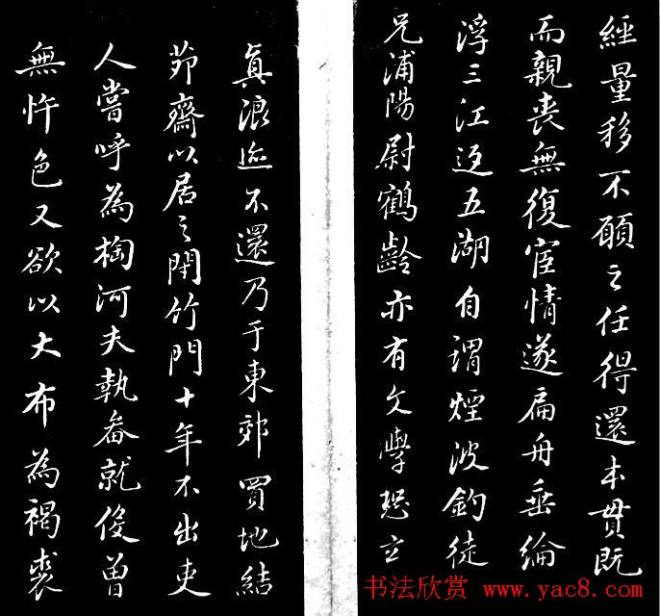 經量移不願之任得還本貫既
而親喪無復宦情遂扁舟垂綸
浮三江泛五湖自謂煙波釣徒
兄浦陽尉鶴齡亦有文學恐立
真浪迹不還乃于東郊買地結
茆齋以居之閉竹門十年不出吏
人嘗呼為掏河夫執畚就役曾
無忤色又欲以大布為褐裘
书法欣赏 www.yac8.com